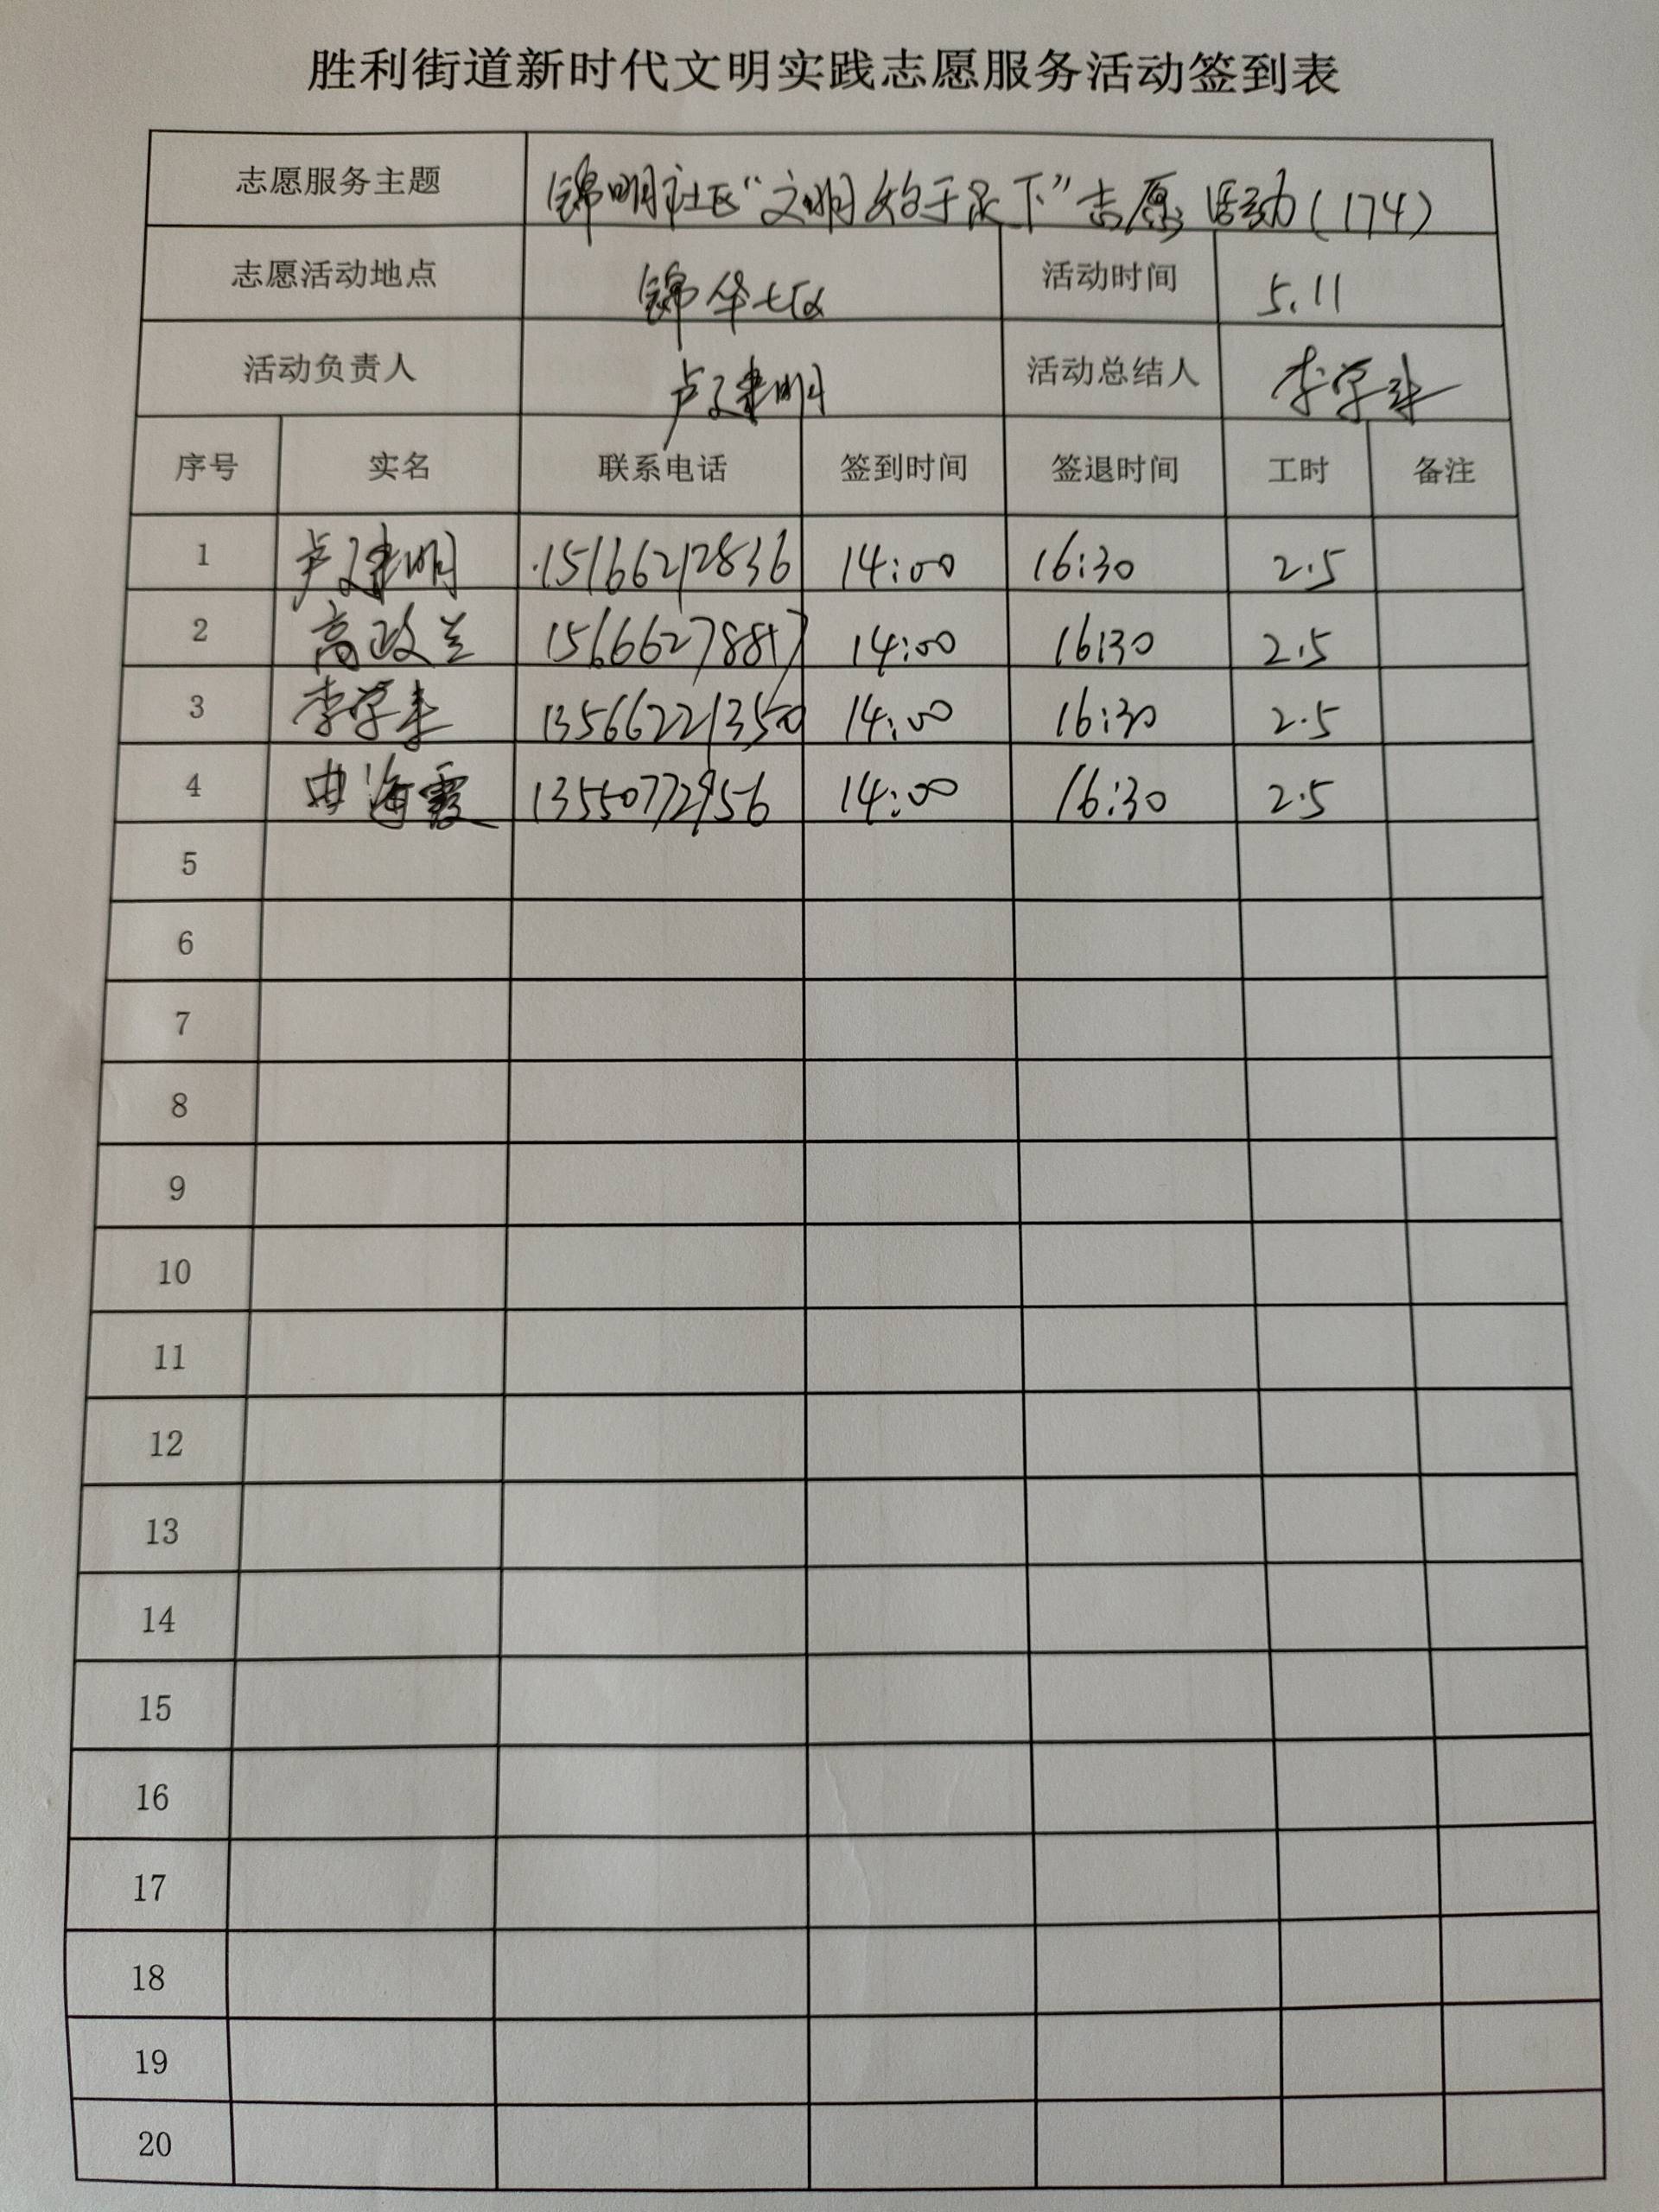 胜利街道新时代文明实践志愿服务活动签到表
志愿服务主题 锦明社区“文明始于足下”志愿活动(174)
志愿活动地点 锦华七区 活动时间 5.11
活动负责人 卢建明 活动总结人 李学
序号 实名 联系电话 签到时间 签退时间 工时 备注
1 卢建明 15166212836 14:00 16:30 2.5
2 高政兰 14:00 16:30 2.5
3 李学 13566221350 14:00 16:30 2.5
4 曲海霞 13550772956 14:00 16:30 2.5
5
6
7
8
9
10
11
12
13
14
15
16
17
18
19
20